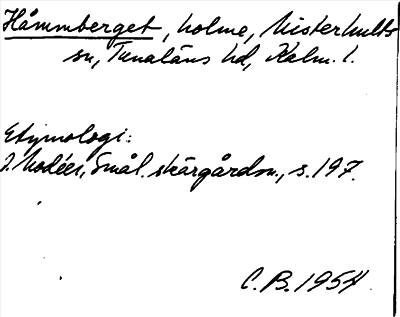 Håmmberget, holme, Misterhults
sn, Tunaläns hd, Kalm. l.
Etymologi:
I. Modéer, Smål. skärgårdsn., s. 197.
C. B. 1954.